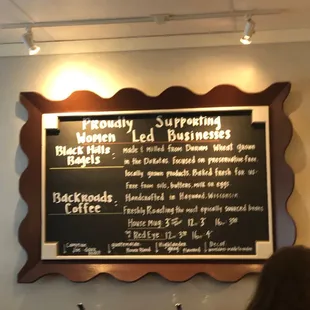 Proudly Supporting
Women Led Businesses
Black Hills Bagels :
made & milled from Durum Wheat grown
in the Dakotas. focused on preservative free,
locally grown products. Baked fresh for us
free from oils, butters, milk or eggs
Backroads Coffee :
Handcrafted in Hayward, Wisconsin.
Freshly Roasting the most ethically sourced beans
House Mug 3
12- 3 16- 3.50
Red Eye 12- 3.50 16- 4
Guatemalan
Highlander
Decaf
House Blend
Flavored